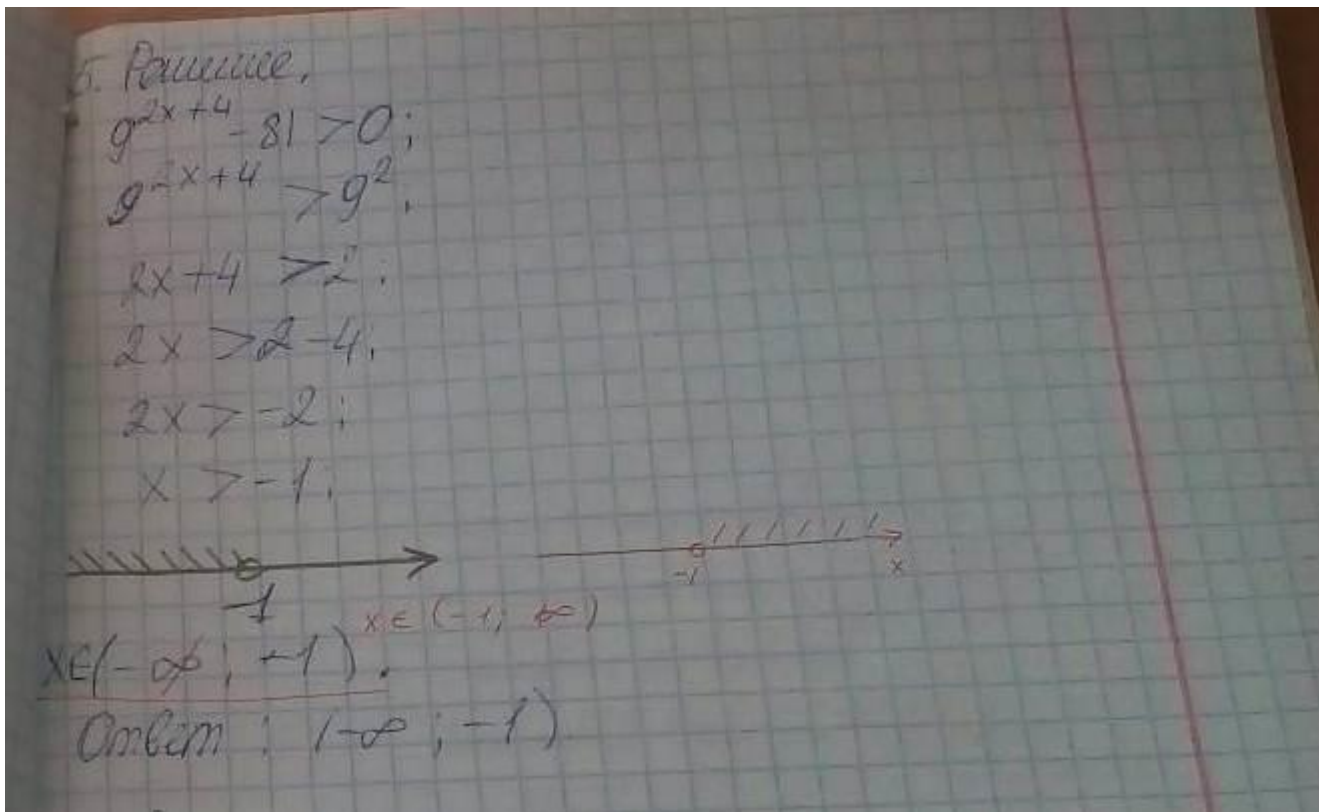 5. Решение.
9^{2x+4} - 81 > 0;
9^{2x+4} > 9^2.
2x+4 > 2.
2x > 2-4.
2x > -2;
x > -1.
-1
-1 x
x∈(-1; +∞)
x∈(-∞; -1).
Ответ: (-∞; -1)